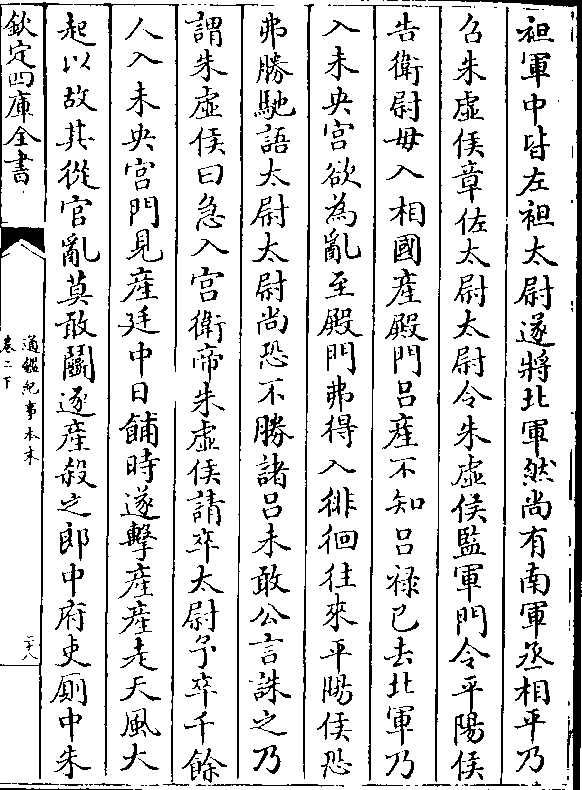 袒軍中皆左袒太尉遂將北軍然尚有南軍丞相平乃
召朱虛侯章佐太尉太尉令朱虛侯監軍門令平陽侯
告衛尉毋入相國產殿門呂產不知呂祿已去北軍乃
入未央宮欲為亂至殿門弗得入徘徊往來平陽侯恐
弗勝馳語太尉太尉尚恐不勝諸呂未敢公言誅之乃
謂朱虛侯曰急入宮衛帝朱虛侯請卒太尉予卒千餘
人入未央宮門見產廷中日餔時遂擊產產走天風大
起以故其從官亂莫敢鬭逐產殺之郎中府吏厠中朱
欽定四庫全書
通鑑紀事本末
卷二下
二十八